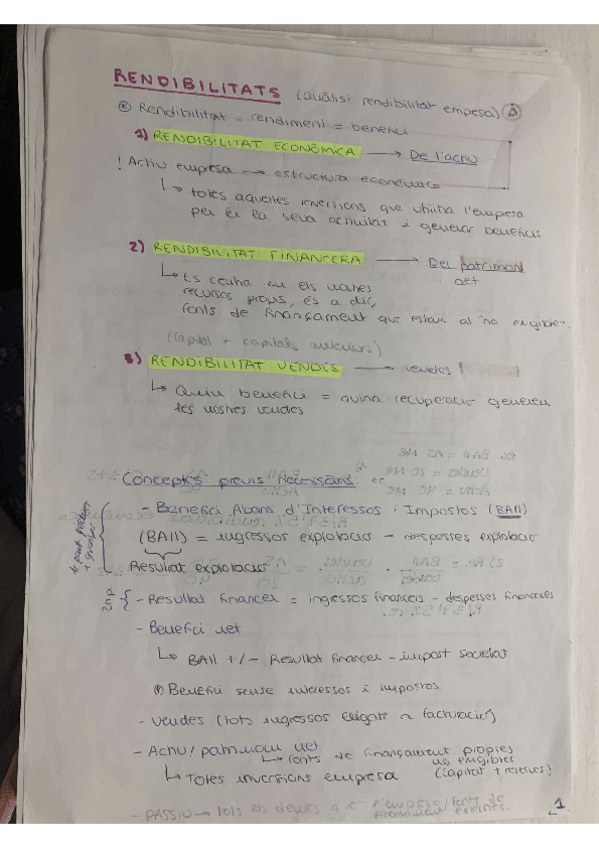 RENDIBILITATS (anàlisi rendibilitat empesa)
* Rendibilitat = rendiment = benefici
1) RENDIBILITAT ECONÒMICA → De l'actiu
! Actiu empresa → estructura econòmica
↳ totes aquelles inversions que utilitza l'empesa
per fer la seva activitat i generar beneficis
2) RENDIBILITAT FINANCERA → Del patrimoni
net
↳ Es centra en els nostres
recursos propis, és a dir,
fonts de finançament que estan al "no exigible".
(capital + capitals anteriors)
3) RENDIBILITAT VENDES → vendes
↳ Quin benefici = quina recuperació generen
les nostres vendes
Conceptes previs necessaris
- Benefici Abans d'Interessos i Impostos (BAII)
(BAII) = ingressos explotació - despesses explotació
Resultat explotació
- Resultat financer = ingressos financers - despesses financeres
- Benefici net
↳ BAII +/- Resultat financer - impost societat
Benefici sense interessos i impostos
- Vendes (tots ingressos facturació)
- Actiu / patrimoni net
↳ fonts de finançament propies
no exigibles
(capital + reserves)
↳ Totes inversions empresa
- PASSIU → tots els deutes l'empesa / fonts de
finançament externes.
1